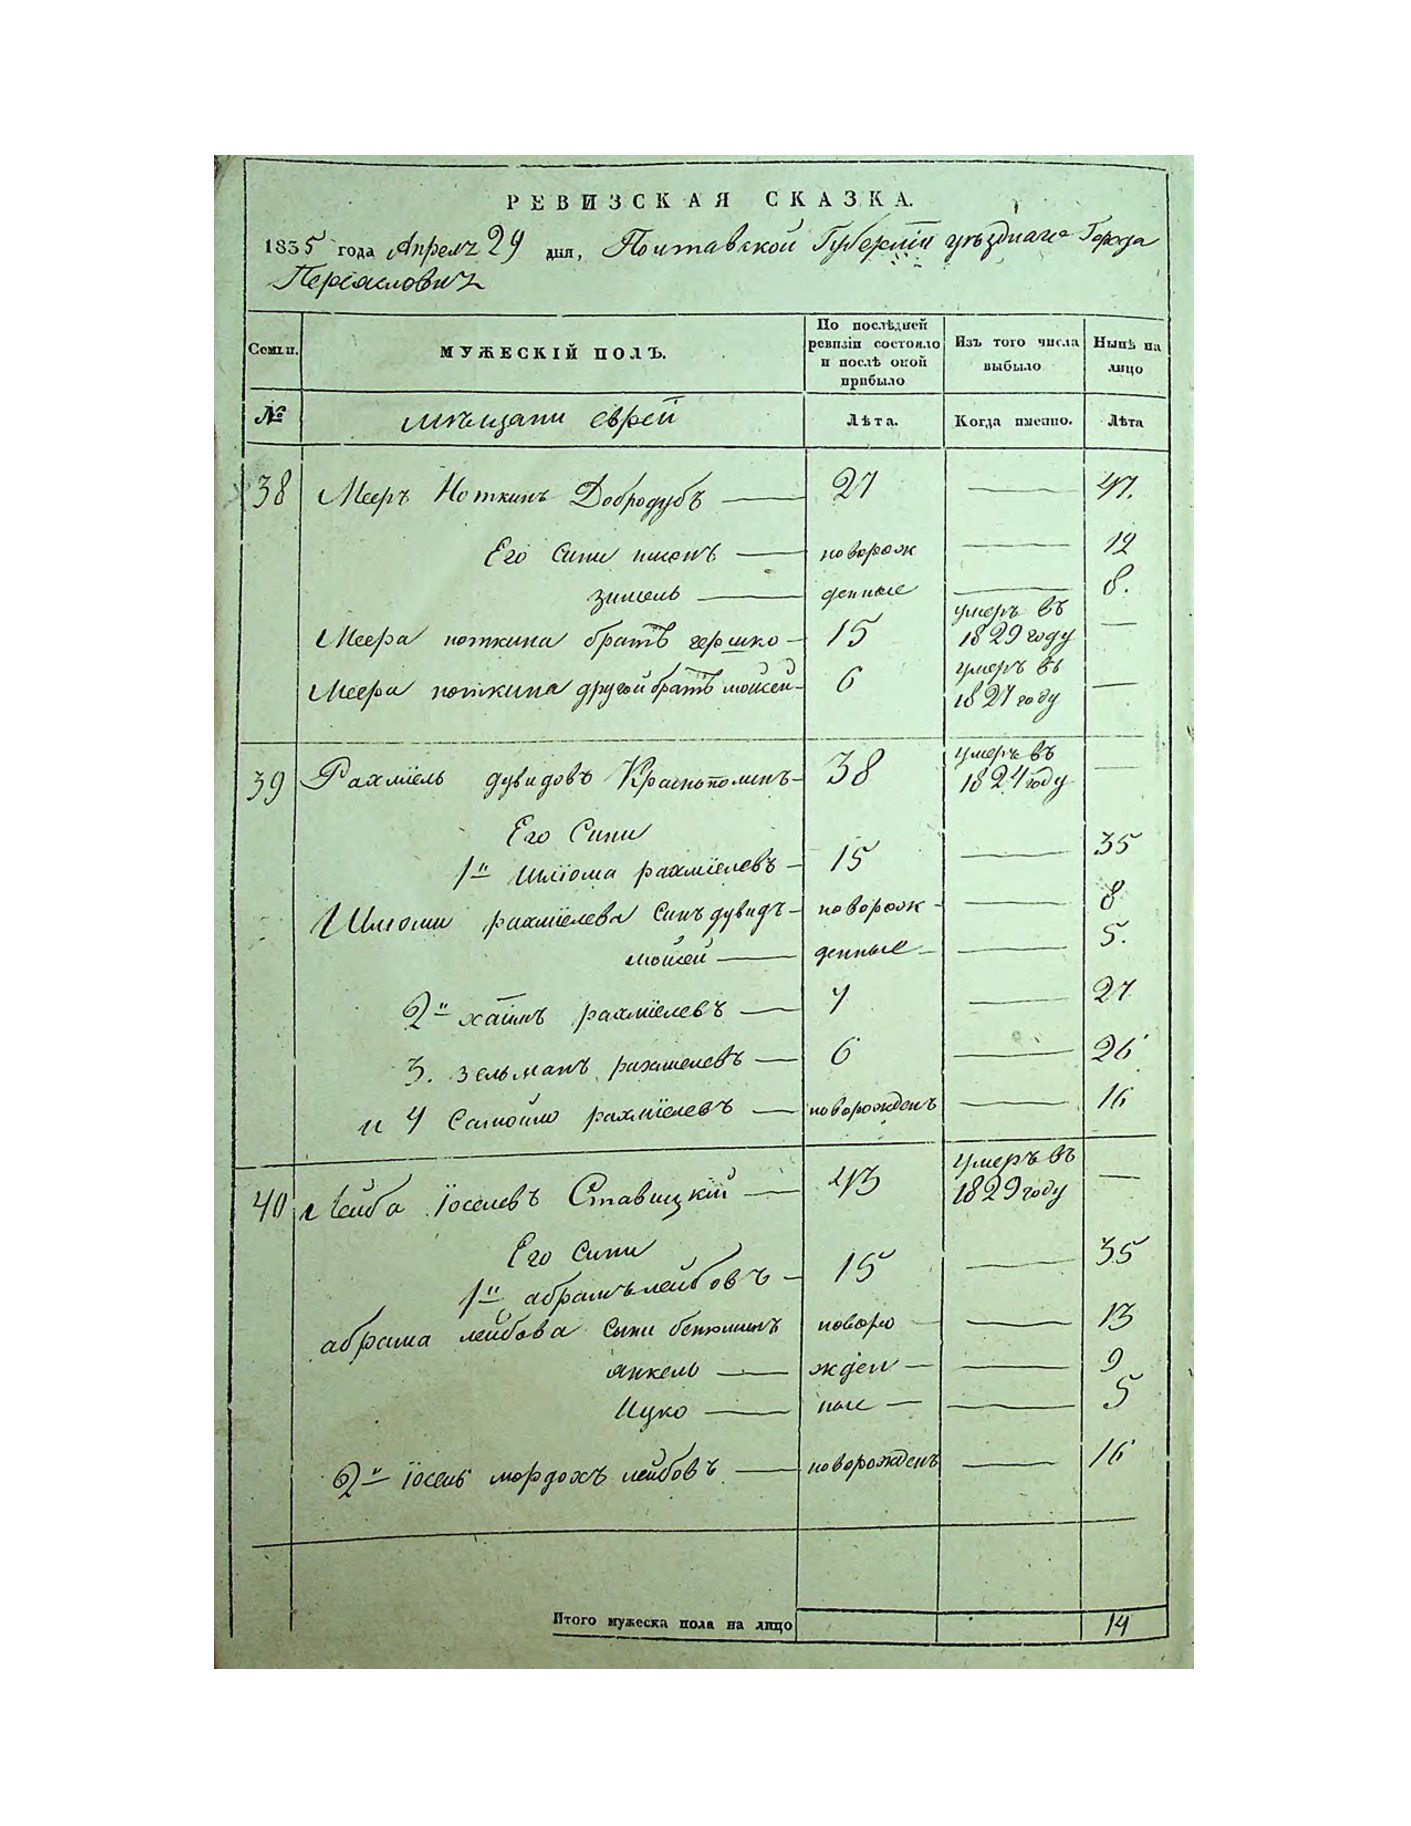 РЕВИЗСКАЯ СКАЗКА.
1835 года Апреля 29 дня, Полтавской Губернии уѣзднаго Города
Переяслович
Семьи. МУЖЕСКІЙ ПОЛЪ. По послѣдней ревизіи состояло и послѣ оной прибыло Изъ того числа выбыло Нынѣ на лицо
№ мѣщани еврей Лѣта. Когда именно. Лѣта
38 Мееръ Ноткинъ Добродубъ 27 47.
Его Сини новорож 12
зимель денные 8.
Меера ноткина братъ гершко 15 умеръ въ 1829 году
Меера ноткина другой братъ мойсей 6 умеръ въ 1827 году
39 Рахміель дувидовъ 38 умеръ въ 1824 году
Его Сини
1й шліома рахміелевъ 15 35
Шлиоми рахміелева синъ дувидъ новорож 8
мойсей денные 5.
2й хаимъ рахміелевъ 7 27
3. зельманъ рахмиелевъ 6 26
и 4 Самойло рахміелевъ новорожденъ 16
40 Лейба Іоселевъ Ставицкій 43 умеръ въ 1829 году
Его Сини
1й абрамъ лейбовъ 15 35
абрама лейбова сыни бенюминъ новоро 13
янкель жден 9
Ицко ные 5
2й Іосель мордохъ лейбовъ новорожденъ 16
Итого мужеска пола на лицо 14